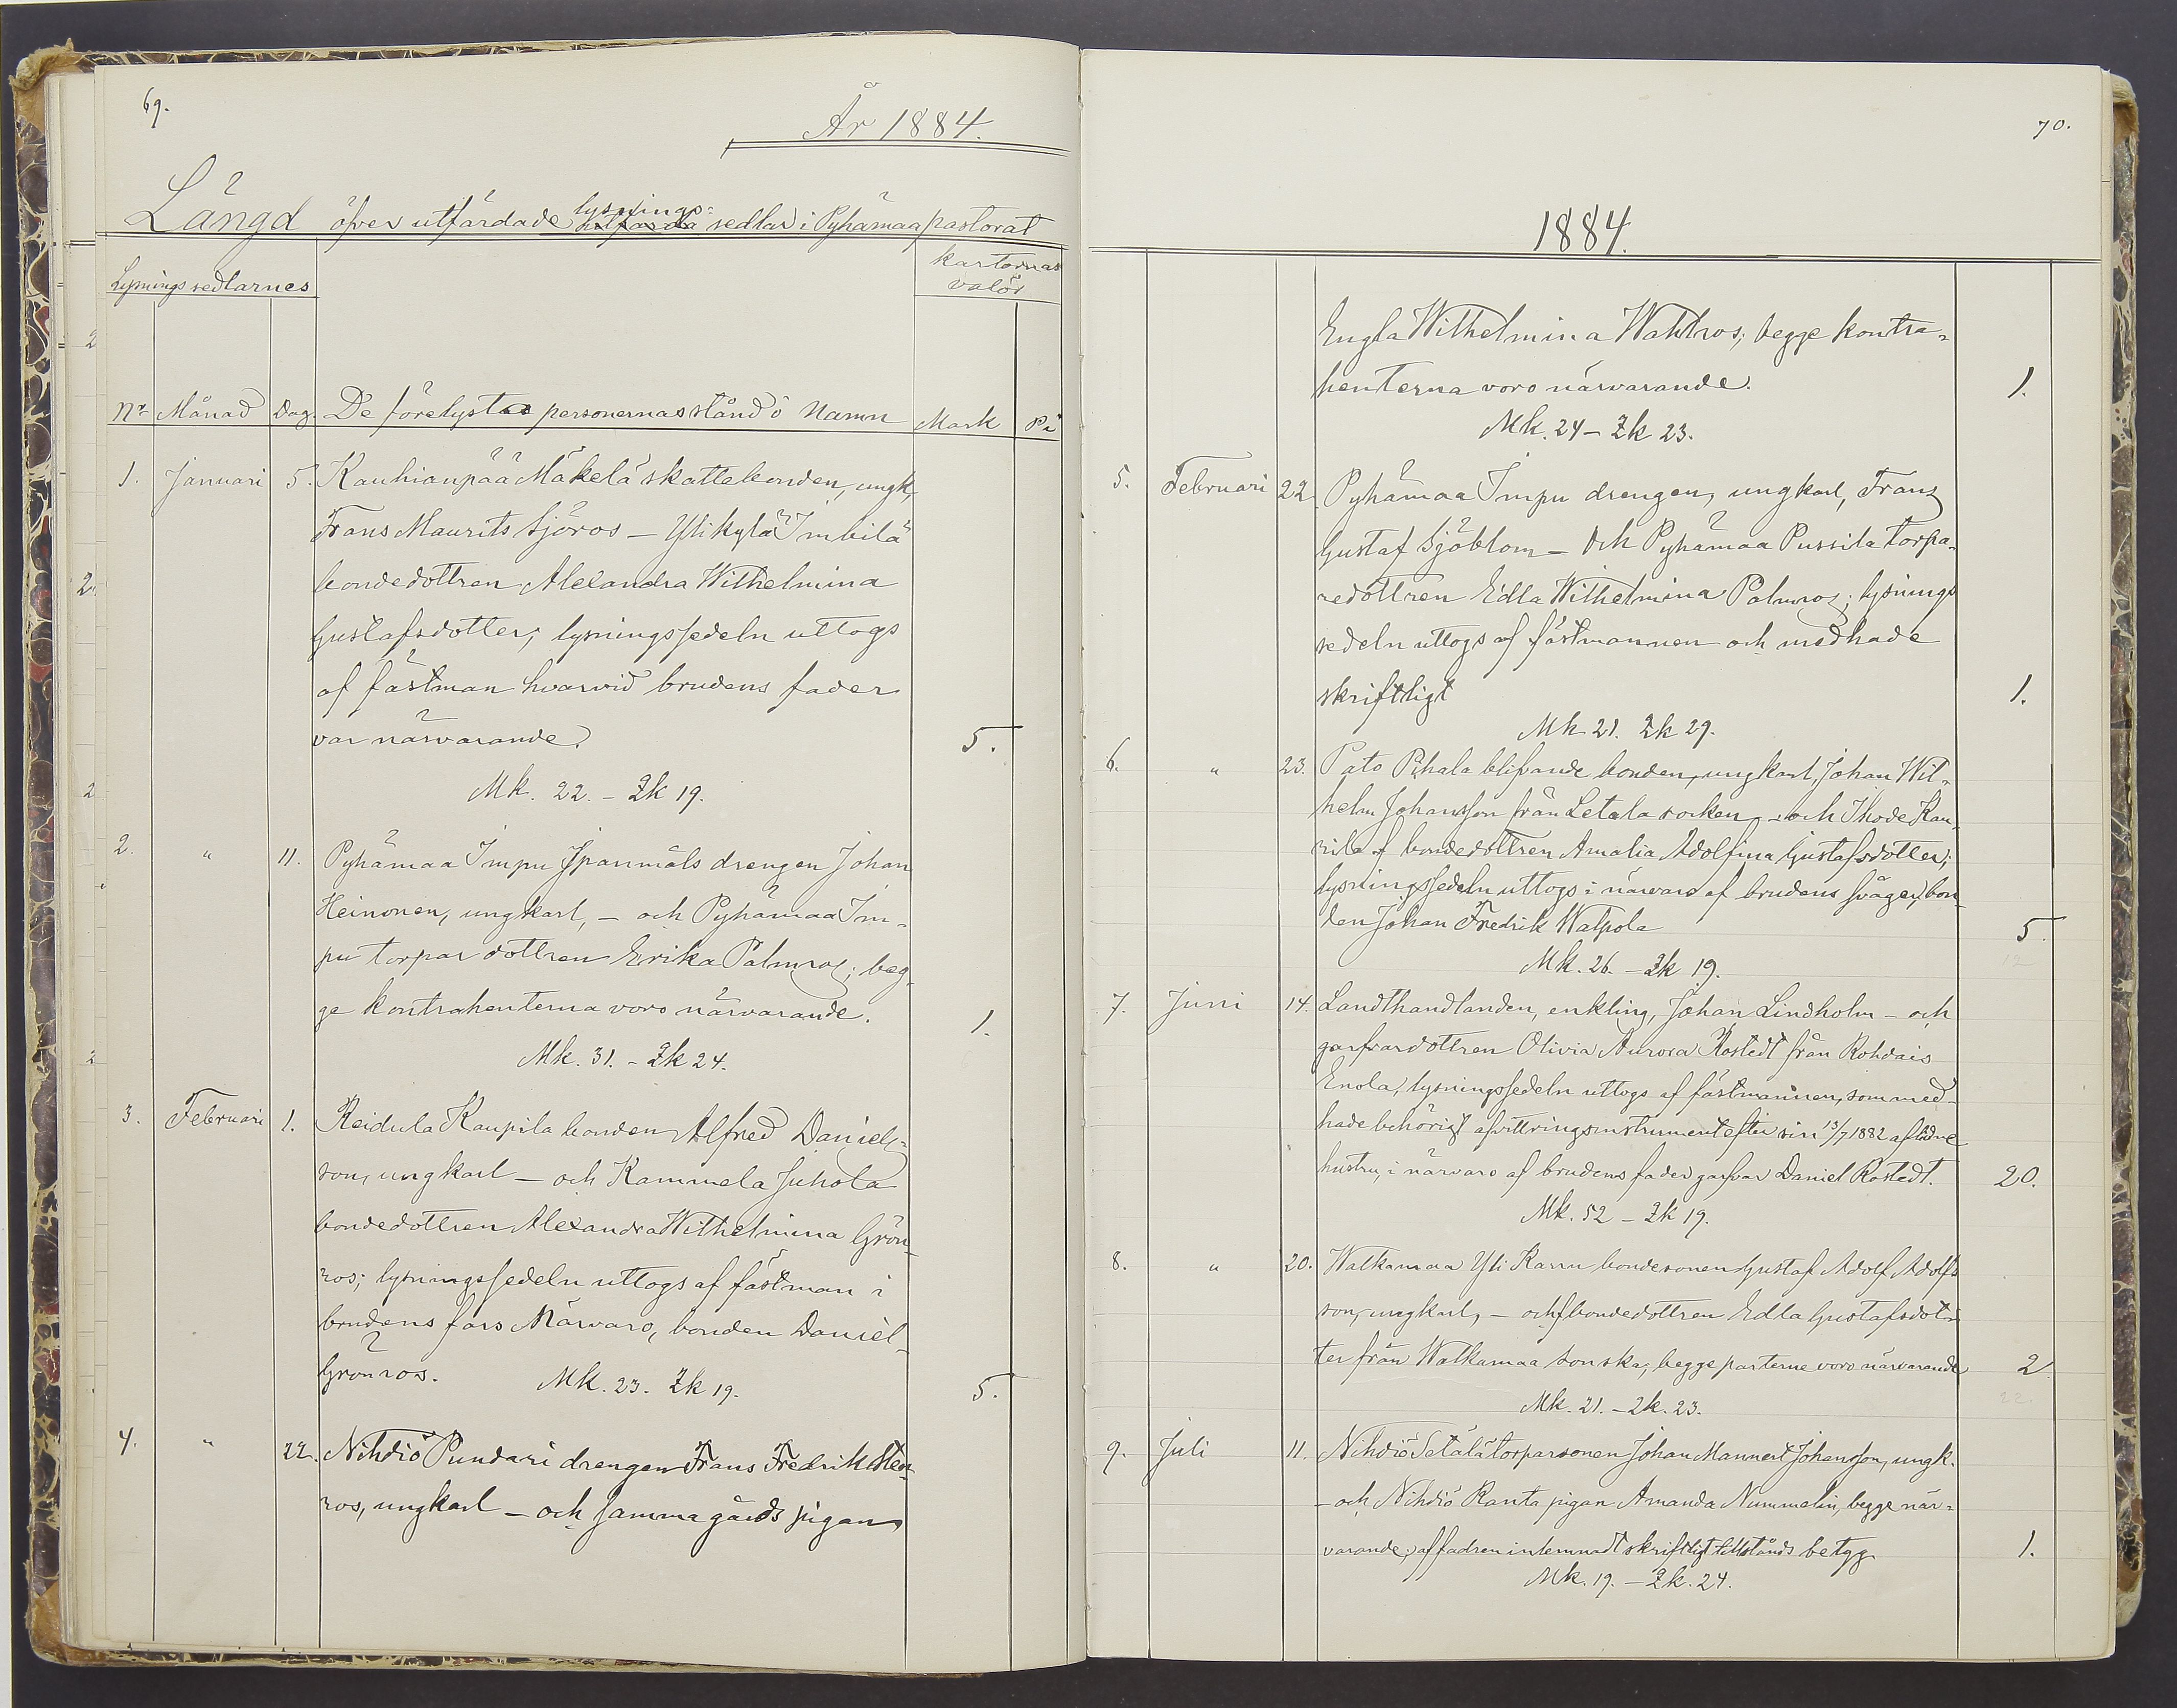 69.
År 1884.
Längd öfver utfärdade lysnings= sedlar i Pyhämaa pastorat
Lysnings sedlarnes
kartornas
valör
Nr Månad Dag. De förelystas personernas stånd o namn Mark Pi
1. Januari 5. Kauhianpää Mäkelä skattebonden, ungk.
Frans Maurits Sjöros – Ylikylä Imbilä
bondedottren Alexandra Wilhelmina
Gustafsdotter; lysningssedeln uttogs
af fästman hvarvid brudens fader
var närvarande. 5.
Mk. 22. – Qk 19.
2. " 11. Pyhämaa Impu Spanmåls drengen Johan
Heinonen, ungkarl, – och Pyhämaa Im-
pu torpar dottren Erika Palmros; beg-
ge kontrahenterna voro närvarande. 1.
Mk. 31. – Qk 24.
3. Februari 1. Reidula Kaupila bonden Alfred Daniels-
son, ungkarl – och Kammela Juhola
bondedottren Alexandra Wilhelmina Grön-
ros; lysningssedeln uttogs af fästman i
brudens fars Närvaro, bonden Daniel
Grönros. Mk. 23. Qk 19. 5.
4. " 22. Nihdiö Pundari drengen Frans Fredrik Sten-
ros, ungkarl – och samma gårds pigan
70.
1884.
Engla Wilhelmina Wahlros; begge kontra-
henterna voro närvarande. 1.
Mk. 24 – Qk 23.
5. Februari 22. Pyhämaa Impu drengen, ungkarl, Frans
Gustaf Sjöblom – Och Pyhämaa Pussila torpa-
redottren Edla Wilhelmina Palmros; lysnings
sedeln uttogs af fästmannen och medhade
skriftligt 1.
Mk 21. Qk 29.
6. " 23. Pato Pihala blifvande bonden, ungkarl, Johan Wil-
helm Johansson från Letala socken, – och Ihode Kau-
rila bondedottren Amalia Adolfina Gustafsdotter;
lysningssedeln uttogs i närvaro af brudens svåger, bon-
den Johan Fredrik Walpola 5.
Mk. 26. – Qk 19.
7. Juni 14. Landthandlanden, enkling, Johan Lindholm – och
garfvardottren Olivia Aurora Rostedt från Rohdais
Enola, lysningssedeln uttogs af fästmannen, som med-
hade behörigt afvittringsinstrument efter sin 13/7 1882 aflidne
hustru, i närvaro af brudens fader garfvar Daniel Rostedt. 20.
Mk. 52 – Qk 19.
8. " 20. Walkamaa Yli Karru bondesonen Gustaf Adolf Adolfs
son, ungkarl, – och bondedottren Edla Gustafsdot-
ter från Walkamaa Sonska, begge parterne voro närvarande 2
Mk. 21. – Qk. 23.
9. Juli 11. Nihdiö Setälä torparsonen Johan Mannert Johansson, ungk.
– och Nihdiö Ranta pigan Amanda Nummelin, begge när=
varande; af fadren inlemnadt skriftligt tillstånds betyg. 1.
Mk. 19. – Qk. 24.